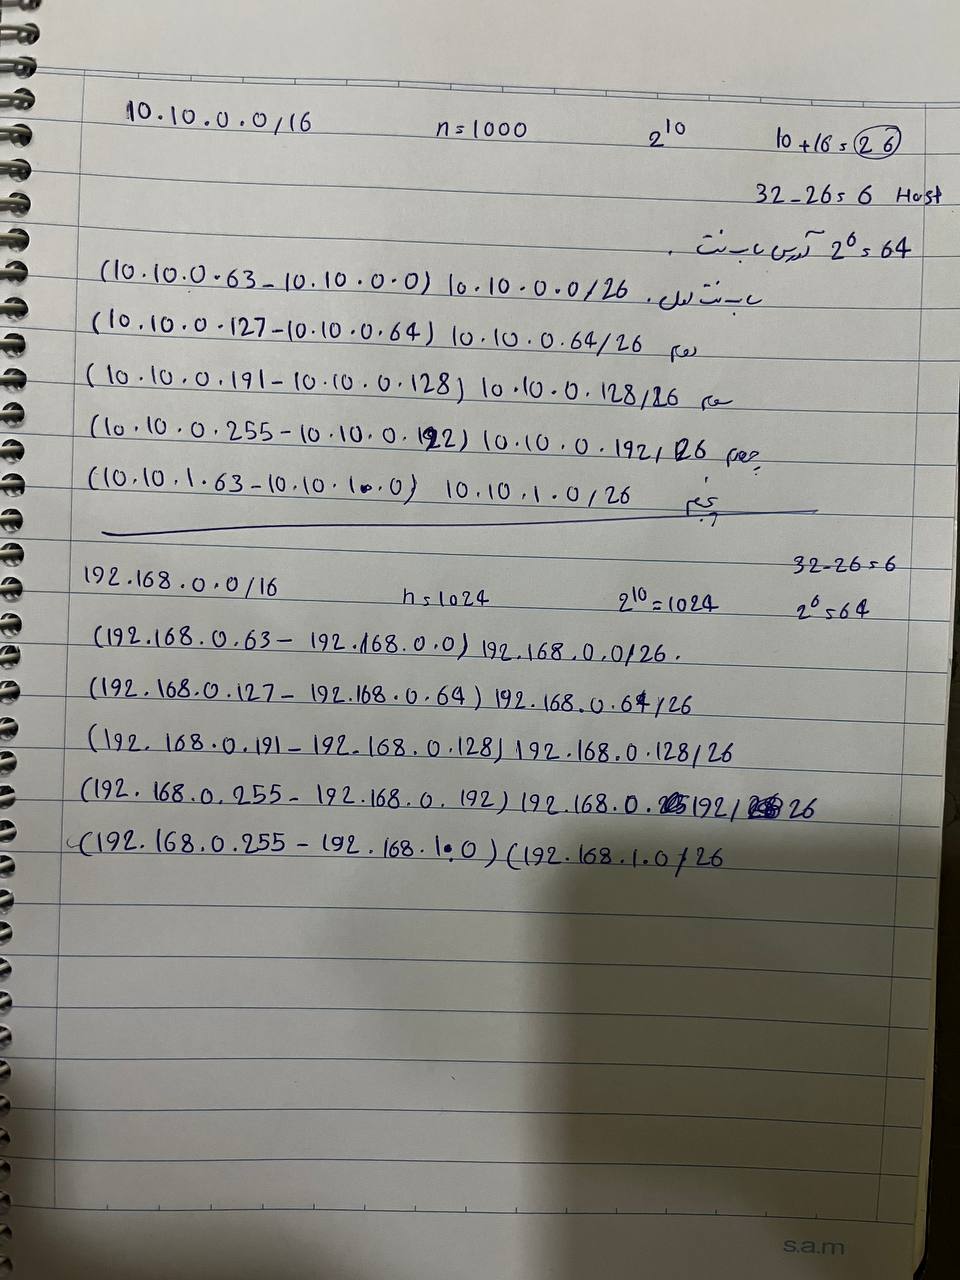 10.10.0.0/16 n=1000 2^10 10+16=26
32-26=6 Host
2^6=64 آدرس ساب نت.
(10.10.0.63-10.10.0.0) 10.10.0.0/26 ساب نت اول.
(10.10.0.127-10.10.0.64) 10.10.0.64/26 دوم
(10.10.0.191-10.10.0.128) 10.10.0.128/26 سوم
(10.10.0.255-10.10.0.192) 10.10.0.192/26 چهارم
(10.10.1.63-10.10.1.0.0) 10.10.1.0/26 پنجم
32-26=6
192.168.0.0/16 n=1024 2^10=1024 2^6=64
(192.168.0.63-192.168.0.0) 192.168.0.0/26.
(192.168.0.127-192.168.0.64) 192.168.0.64/26
(192.168.0.191-192.168.0.128) 192.168.0.128/26
(192.168.0.255-192.168.0.192) 192.168.0.192/26
(192.168.0.255-192.168.1.0) (192.168.1.0/26
s.a.m